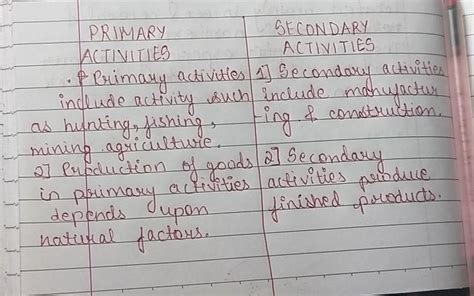 PRIMARY
ACTIVITIES
Primary activities
include activity such
as hunting, fishing,
mining agriculture.
2] Production of goods
in primary activities
depends upon
natural factors.
SECONDARY
ACTIVITIES
1] Secondary activities
include manufactur
-ing & construction.
2] Secondary
activities produce
finished products.